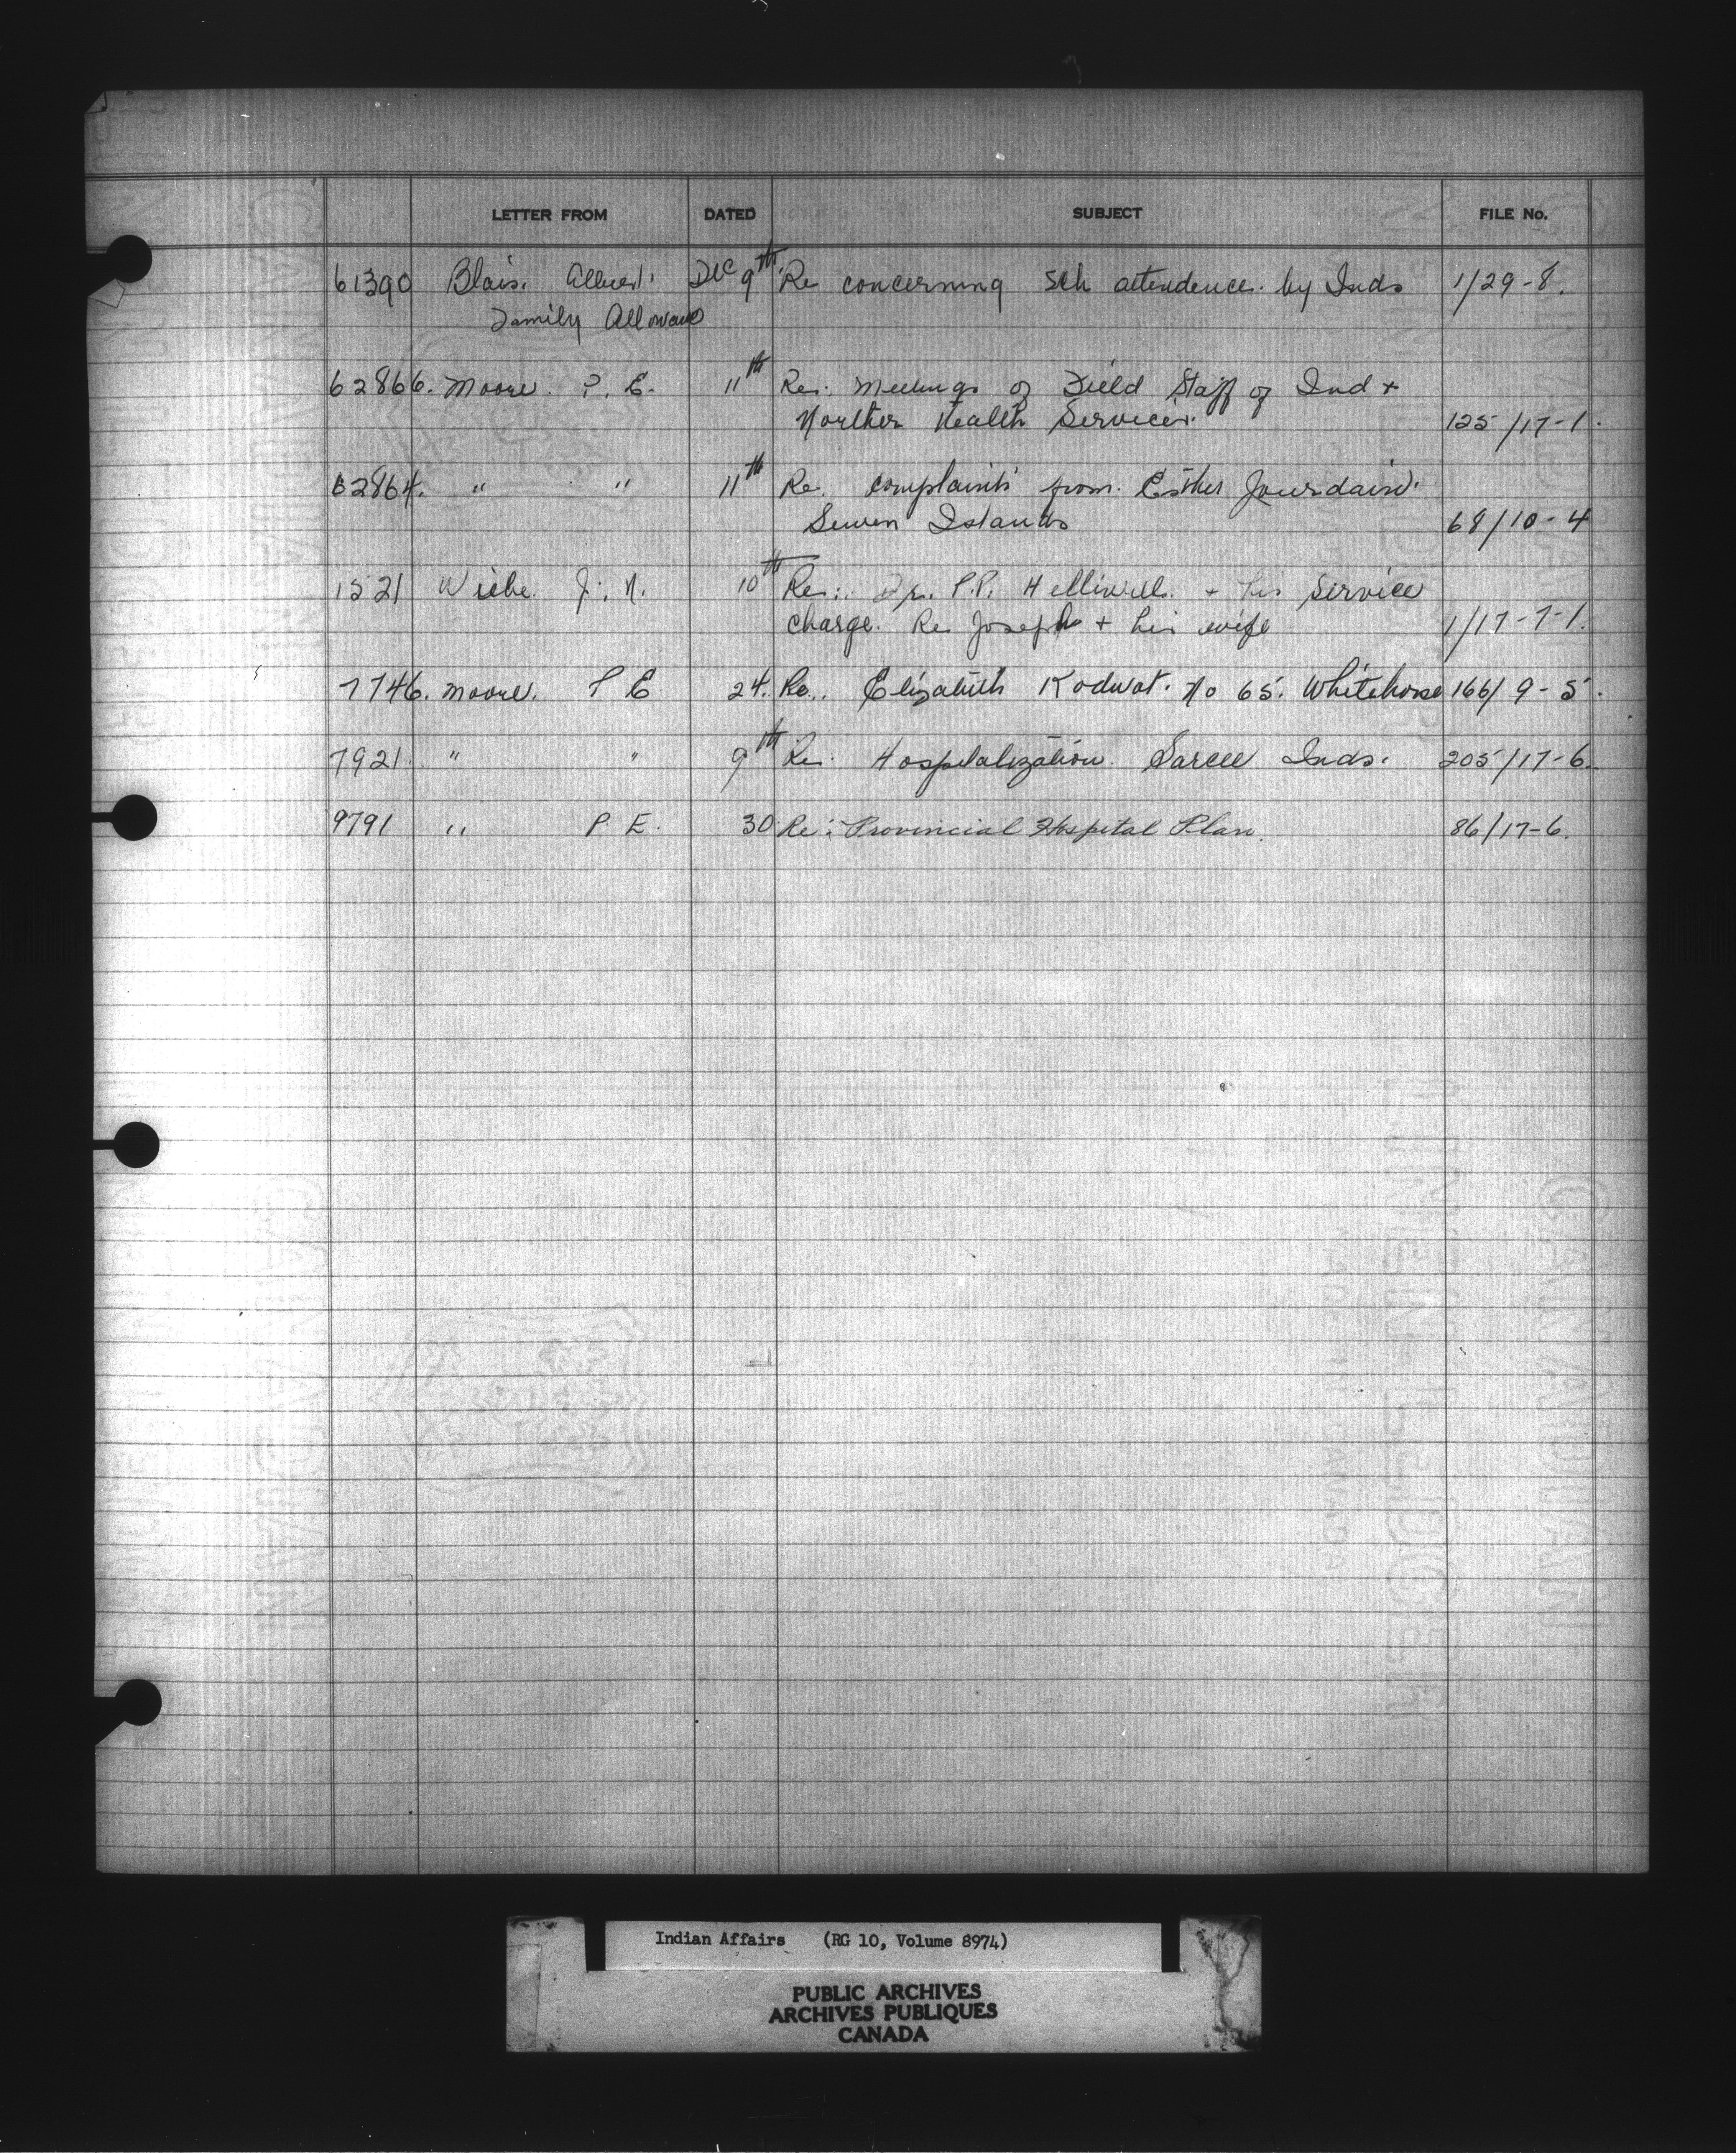 LETTER FROM DATED SUBJECT FILE No.
61390 Blais. Albert. Dec 9th Re concerning Sch attendence. by Inds 1/29-8.
Family Allowance
62866. Moore. P. E. 11th Re: Meetings of Field Staff of Ind +
Norther Health Services. 125/17-1.
62864. " " 11th Re. complaints from. Esther Jourdain.
Seven Islands 68/10-4
1521 Wiebe. J. N. 10th Re:. Dr. P.P. Helliwell. + his service
charge. Re Joseph + his wife 1/17-7-1.
7746. Moore. P E 24. Re.. Elizabeth Kodwat. No 65. Whitehorse 166/9-5.
7921 " " 9th Re. Hospitalization. Sarcee Inds. 205/17-6.
9791 " P. E. 30 Re: Provincial Hospital Plan. 86/17-6.
Indian Affairs (RG 10, Volume 8974)
PUBLIC ARCHIVES
ARCHIVES PUBLIQUES
CANADA